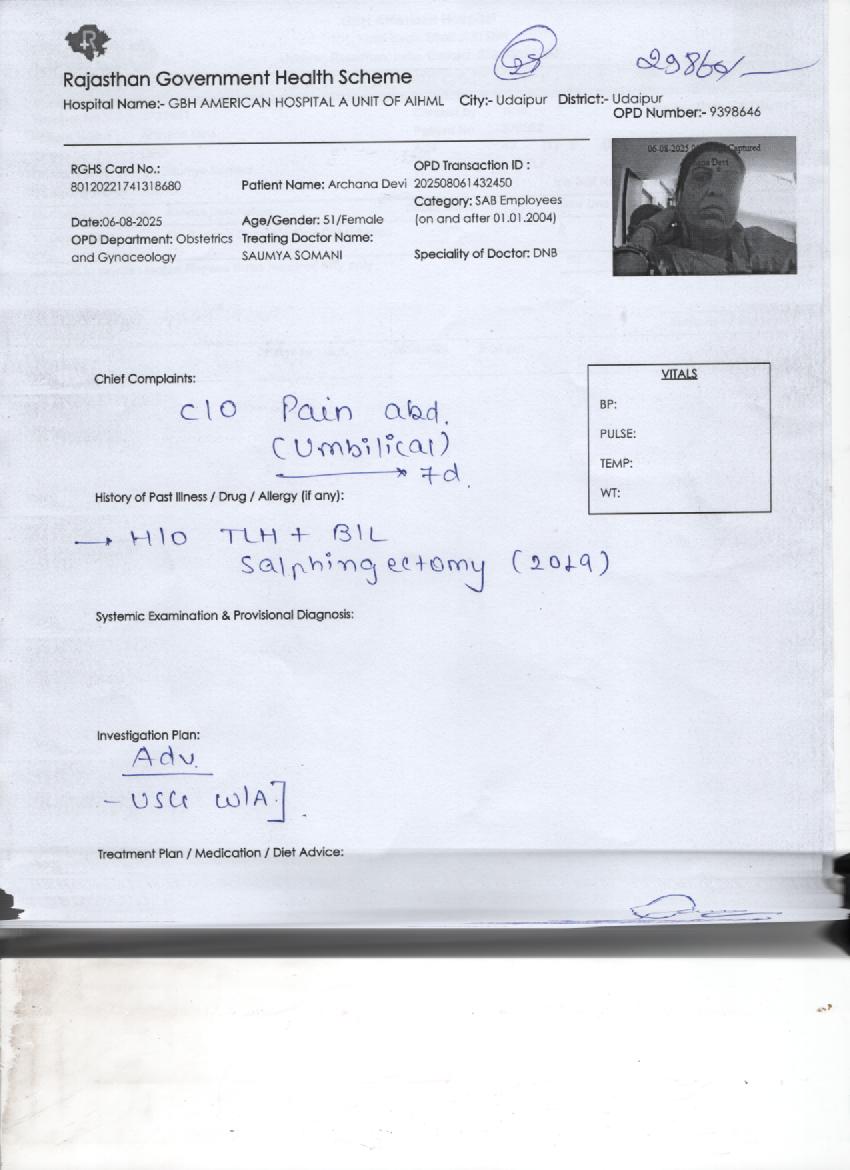 Rajasthan Government Health Scheme
Hospital Name:- GBH AMERICAN HOSPITAL A UNIT OF AIHML City:- Udaipur District:- Udaipur
OPD Number:- 9398646
RGHS Card No.:
80120221741318680
Patient Name: Archana Devi
OPD Transaction ID :
202508061432450
Category: SAB Employees
(on and after 01.01.2004)
Date:06-08-2025
Age/Gender: 51/Female
OPD Department: Obstetrics
and Gynaceology
Treating Doctor Name:
SAUMYA SOMANI
Speciality of Doctor: DNB
06-08-2025
Captured
Devi
Chief Complaints:
C/O Pain abd.
(Umbilical)
7d.
VITALS
BP:
PULSE:
TEMP:
WT:
History of Past Illness / Drug / Allergy (if any):
→ H/O TLH + B/L
Salphingectomy (2019)
Systemic Examination & Provisional Diagnosis:
Investigation Plan:
Adv.
- USG W/A].
Treatment Plan / Medication / Diet Advice: